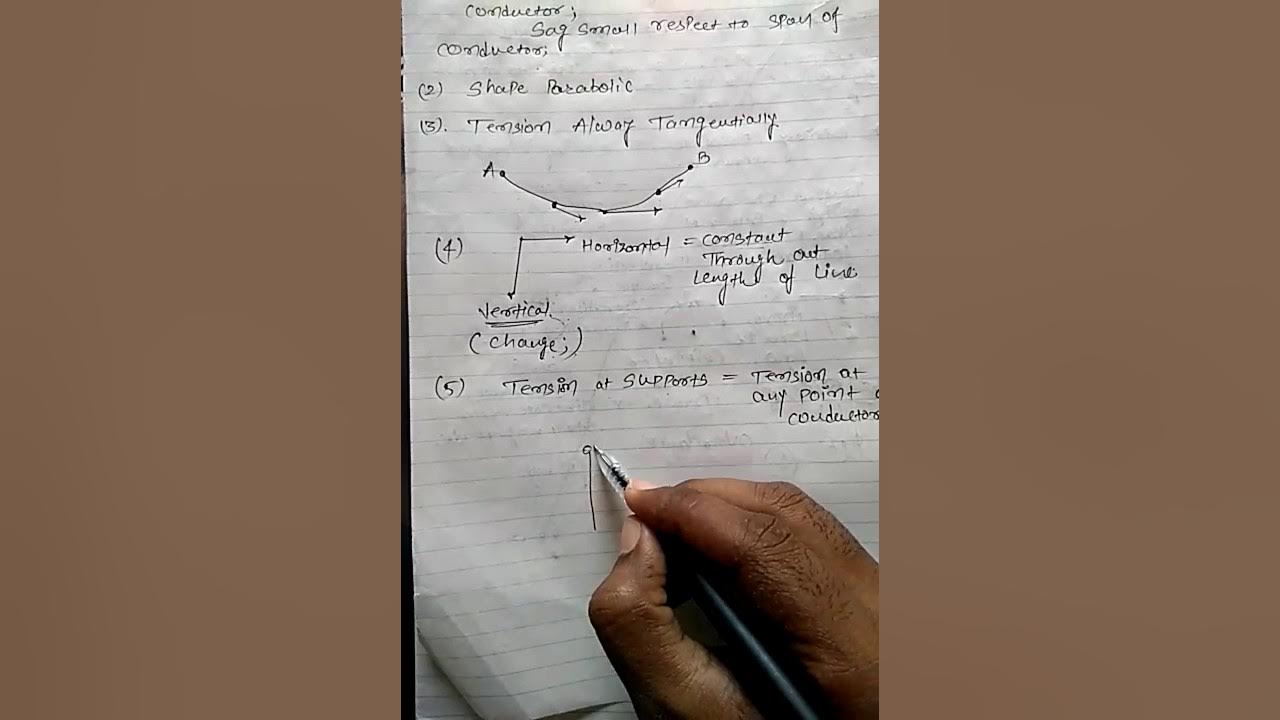 conductor;
Sag small respect to span of
conductor;
(2) Shape Parabolic
(3). Tension Alway Tangentially
A B
(4) Horizontal = constant
Through out
Lengths of line
Vertical.
(change;)
(5) Tension at supports = Tension at
any point
conductor